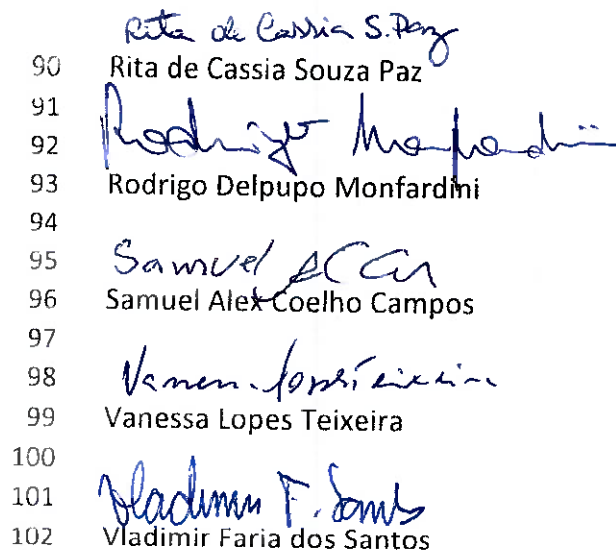 Rita de Cassia S. Paz
90 Rita de Cassia Souza Paz
91
92 Rodrigo Monfardini
93 Rodrigo Delpupo Monfardini
94
95 Samuel
96 Samuel Alex Coelho Campos
97
98 Lopes Teixeira
99 Vanessa Lopes Teixeira
100
101 Vladimir F. Santos
102 Vladimir Faria dos Santos